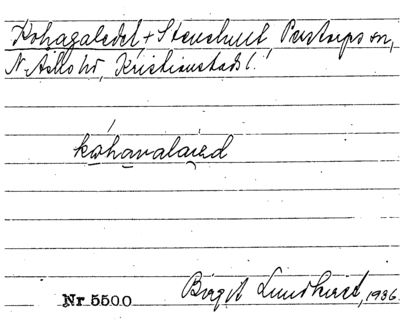 Kohagaledet + Stenshult, Perstorps sn,
N. Åsbo hd, Kristianstads l.
kohavalaied
Nr 5500 Birgit Lundkvist, 1936.